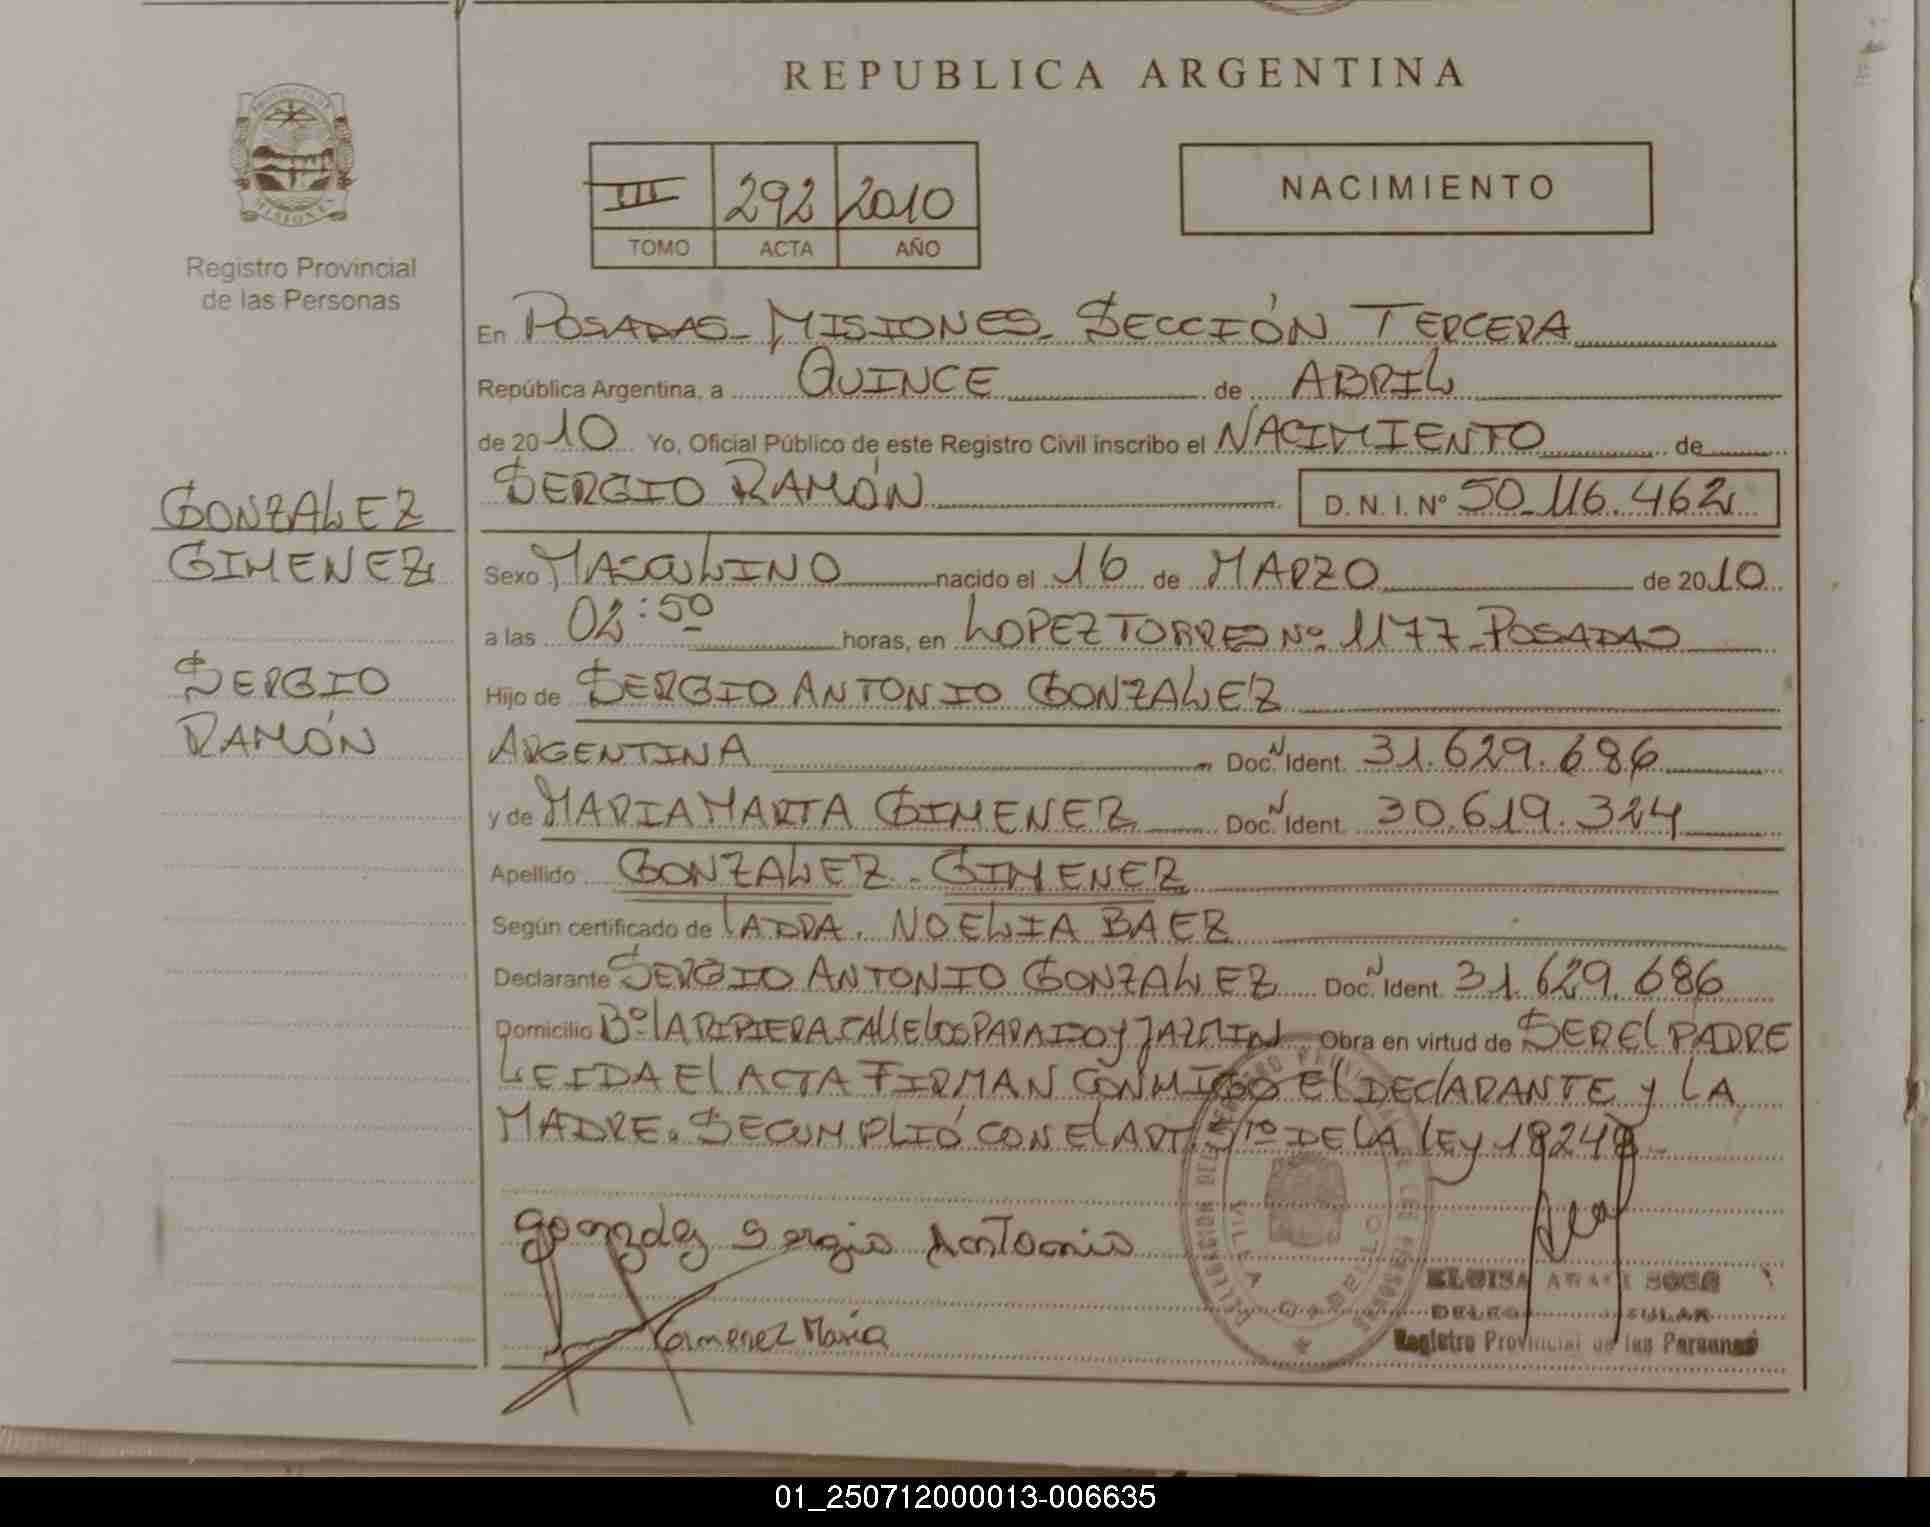 REPUBLICA ARGENTINA
PROVINCIA DE
MISIONES
Registro Provincial
de las Personas
III 292 2010
TOMO ACTA AÑO
NACIMIENTO
En POSADAS - MISIONES - SECCIÓN TERCERA
República Argentina, a QUINCE de ABRIL
de 2010 Yo, Oficial Público de este Registro Civil inscribo el NACIMIENTO de
SERGIO RAMÓN D. N. I. Nº 50.116.462
GONZALEZ
GIMENEZ
SERGIO
RAMÓN
Sexo MASCULINO nacido el 16 de MARZO de 2010
a las 02:50 horas, en LOPEZ TORRES Nº 1177 - POSADAS
Hijo de SERGIO ANTONIO GONZALEZ
ARGENTINA Doc. Ident. 31.629.686
y de MARIA MARTA GIMENEZ Doc. Ident. 30.619.324
Apellido GONZALEZ - GIMENEZ
Según certificado de LA DRA. NOELIA BAEZ
Declarante SERGIO ANTONIO GONZALEZ Doc. Ident. 31.629.686
Domicilio Bº LA RIPIERA CALLE LOS PARAISO Y JAZMIN Obra en virtud de SER El PADRE
LEIDA El ACTA FIRMAN CONMIGO El DEClARANTE y LA
MADRE. SE CUMPLIÓ CON El ART. 5to DE LA LEY 18248 -
Sergio Antonio
Maria
VILLA CABELLO
ELOISA
Registro Provincial de las Personas
01_250712000013-006635